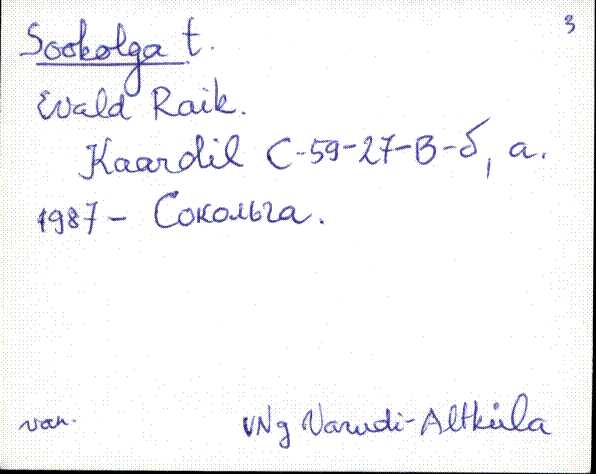 3
Sookolga t.
Evald Raik.
Kaardil С-59-27-В-б, а.
1987 – Сокольга.
van. VNg Varudi-Altküla